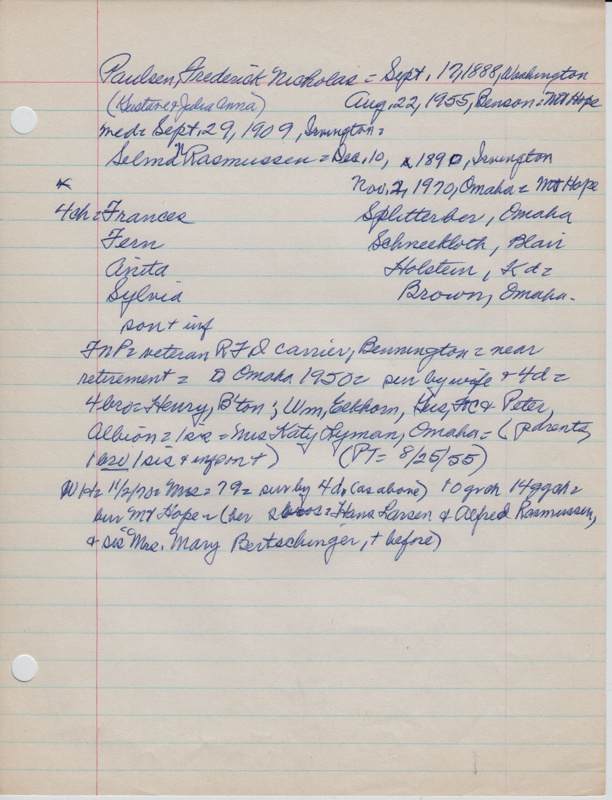 Paulsen, Frederick Nicholas = Sept. 17, 1888, Washington
(Gustave & Julia Anna) Aug. 22, 1955, Benson = Mt Hope
med = Sept. 29, 1909, Irvington =
Selma Rasmussen = Dec. 10, 1890, Irvington
x Nov. 2, 1970, Omaha = Mt Hope
4ch = Frances Splittgerber, Omaha
Fern Schneekloth, Blair
Anita Holstein, Kd =
Sylvia Brown, Omaha.
son + inf
FNP = veteran RFD carrier, Bennington = near
retirement = to Omaha 1950 = sur by wife & 4d =
4bro = Henry, B'ton; Wm, Elkhorn, Gus, & Peter,
Albion = 1 sis = Mrs Katy Lyman, Omaha = (parents,
1 bro 1 sis & inf son +) (PT = 8/25/55)
WH = 11/2/70 = Mrs = 79 = sur by 4d. (as above) 10 grch 14ggch =
bur Mt Hope = (her 2 bros = Hans Larsen & Alfred Rasmussen,
& sis Mrs. Mary Bertschinger, + before)